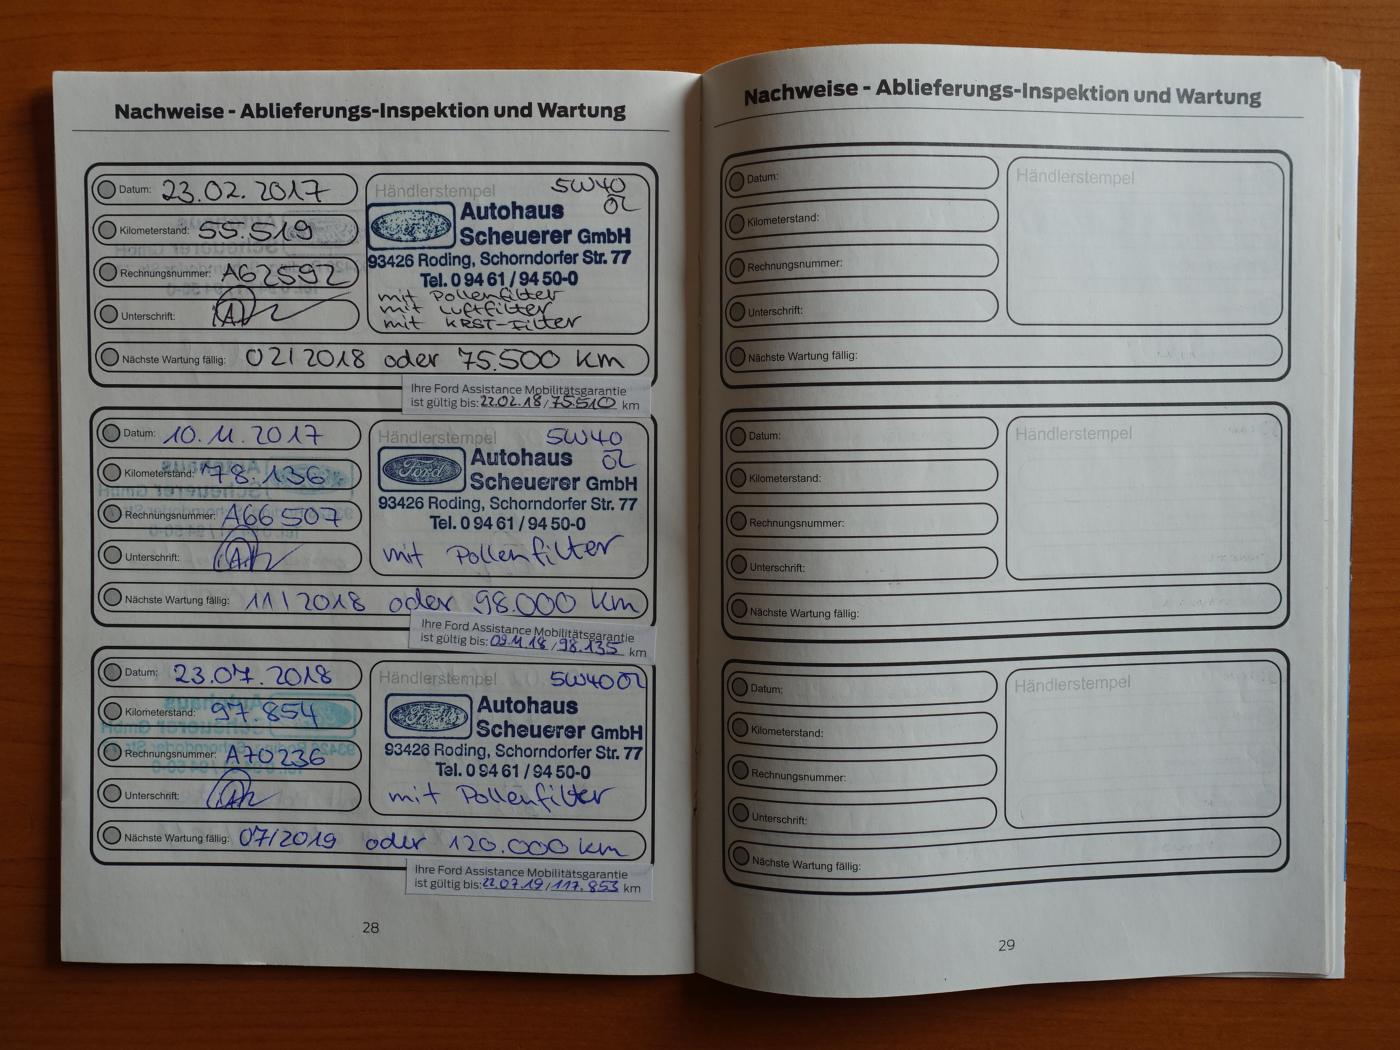 Nachweise - Ablieferungs-Inspektion und Wartung
Datum: 23.02.2017
Kilometerstand: 55.519
Rechnungsnummer: A62592
Unterschrift:
Händlerstempel 5W40
ÖL
Autohaus
Scheuerer GmbH
93426 Roding, Schorndorfer Str. 77
Tel. 0 94 61 / 94 50-0
mit Pollenfilter
mit Luftfilter
mit KRST-Filter
Nächste Wartung fällig: 02/2018 oder 75.500 km
Ihre Ford Assistance Mobilitätsgarantie
ist gültig bis: 22.02.18/75.510 km
Datum: 10.11.2017
Kilometerstand: 78.136
Rechnungsnummer: A66507
Unterschrift:
Händlerstempel 5W40
ÖL
Ford
Autohaus
Scheuerer GmbH
93426 Roding, Schorndorfer Str. 77
Tel. 0 94 61 / 94 50-0
mit Pollenfilter
Nächste Wartung fällig: 11/2018 oder 98.000 km
Ihre Ford Assistance Mobilitätsgarantie
ist gültig bis: 09.11.18/98.135 km
Datum: 23.07.2018
Kilometerstand: 97.854
Rechnungsnummer: A70236
Unterschrift:
Händlerstempel 5W40 ÖL
Ford
Autohaus
Scheuerer GmbH
93426 Roding, Schorndorfer Str. 77
Tel. 0 94 61 / 94 50-0
mit Pollenfilter
Nächste Wartung fällig: 07/2019 oder 120.000 km
Ihre Ford Assistance Mobilitätsgarantie
ist gültig bis: 22.07.19/117.853 km
28
Nachweise - Ablieferungs-Inspektion und Wartung
Datum:
Kilometerstand:
Rechnungsnummer:
Unterschrift:
Händlerstempel
Nächste Wartung fällig:
Datum:
Kilometerstand:
Rechnungsnummer:
Unterschrift:
Händlerstempel
Nächste Wartung fällig:
Datum:
Kilometerstand:
Rechnungsnummer:
Unterschrift:
Händlerstempel
Nächste Wartung fällig:
29